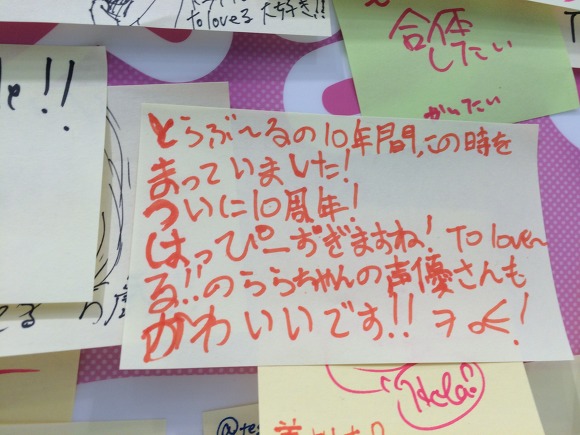 To loveる 大好き!!
合体
したい
かいたい
!!
とらぶ〜るの10年間、この時を
まっていました!
ついに10周年!
はっぴーすぎますね! To love〜
る!!のららちゃんの声優さんも
かわいいです!!
Hola!